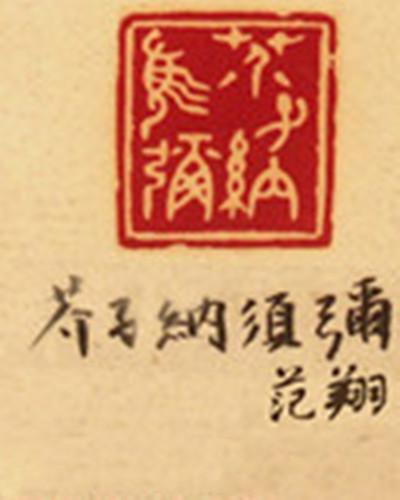 芥子納須彌
芥子納須彌
范翔